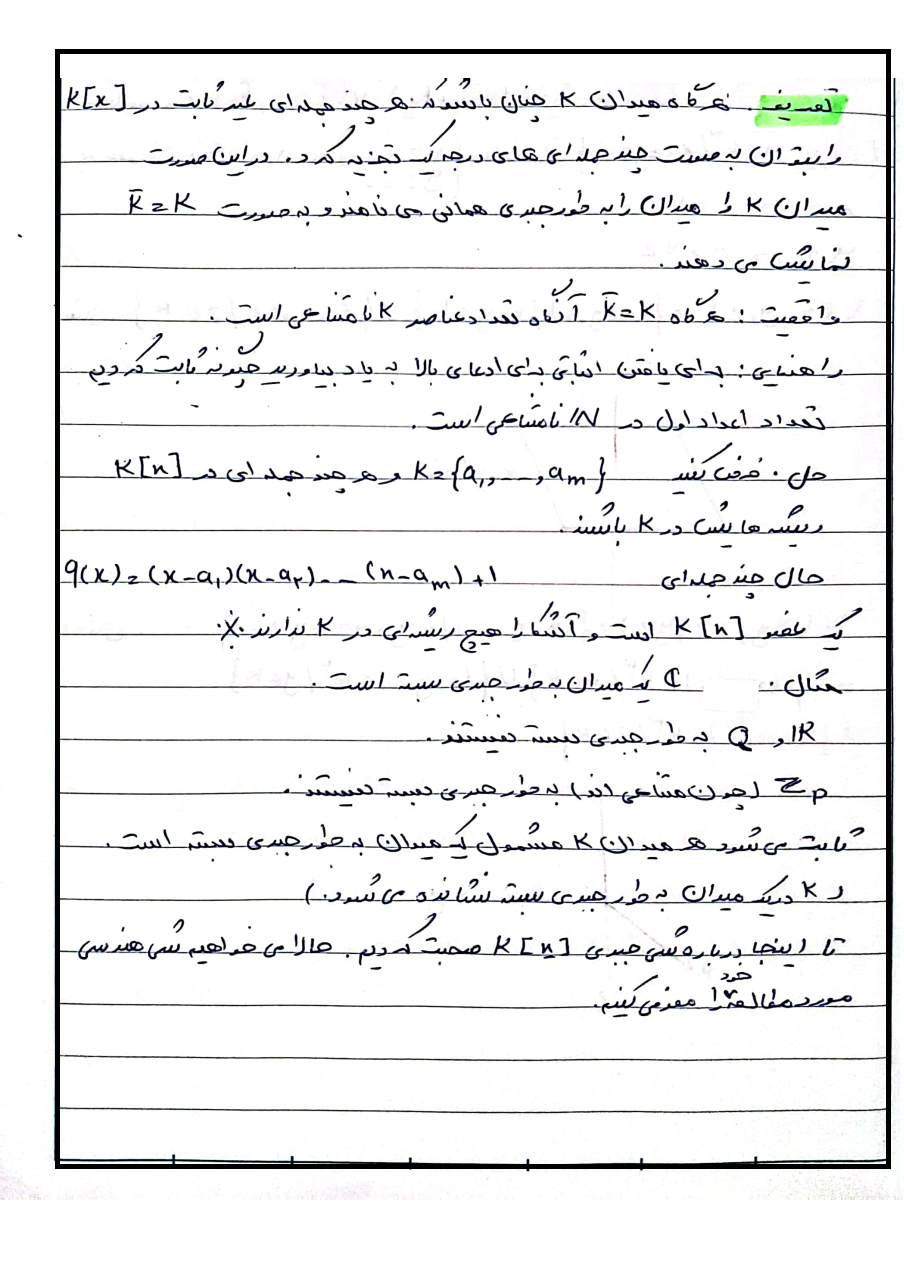 تعریف. هرگاه میدان K چنان باشد که هر چند جمله ای غیر ثابت در K[x]
را بتوان به صورت چند جمله ای های درجه یک تجزیه کرد. در این صورت
میدان K را میدان را به طور جبری همانی می نامند و به صورت K̄=K
نمایش می دهند.
واقعیت : هرگاه K̄=K آنگاه تعداد عناصر K نامتناهی است.
راهنمایی : برای یافتن اثباتی برای ادعای بالا به یاد بیاورید چگونه ثابت کردیم
تعداد اعداد اول در ℕ نامتناهی است.
حل. فرض کنید K={a₁,...,aₘ} و هر چند جمله ای در K[x]
ریشه هایش در K باشند.
حال چند جمله ای q(x)=(x-a₁)(x-a₂)...(x-aₘ)+1
یک عضو K[x] است و آشکارا هیچ ریشه ای در K ندارند ※
مثال. ℂ یک میدان به طور جبری بسته است.
ℝ و Q به طور جبری بسته نیستند.
ℤp (چون متناهی اند) به طور جبری بسته نیستند.
ثابت می شود هر میدان K مشمول یک میدان به طور جبری بسته است.
(K در یک میدان به طور جبری بسته نشانده می شود.)
تا اینجا درباره شی جبری K[x] صحبت کردیم. حالا می خواهیم شی هندسی
مورد مطالعه خود را معرفی کنیم.